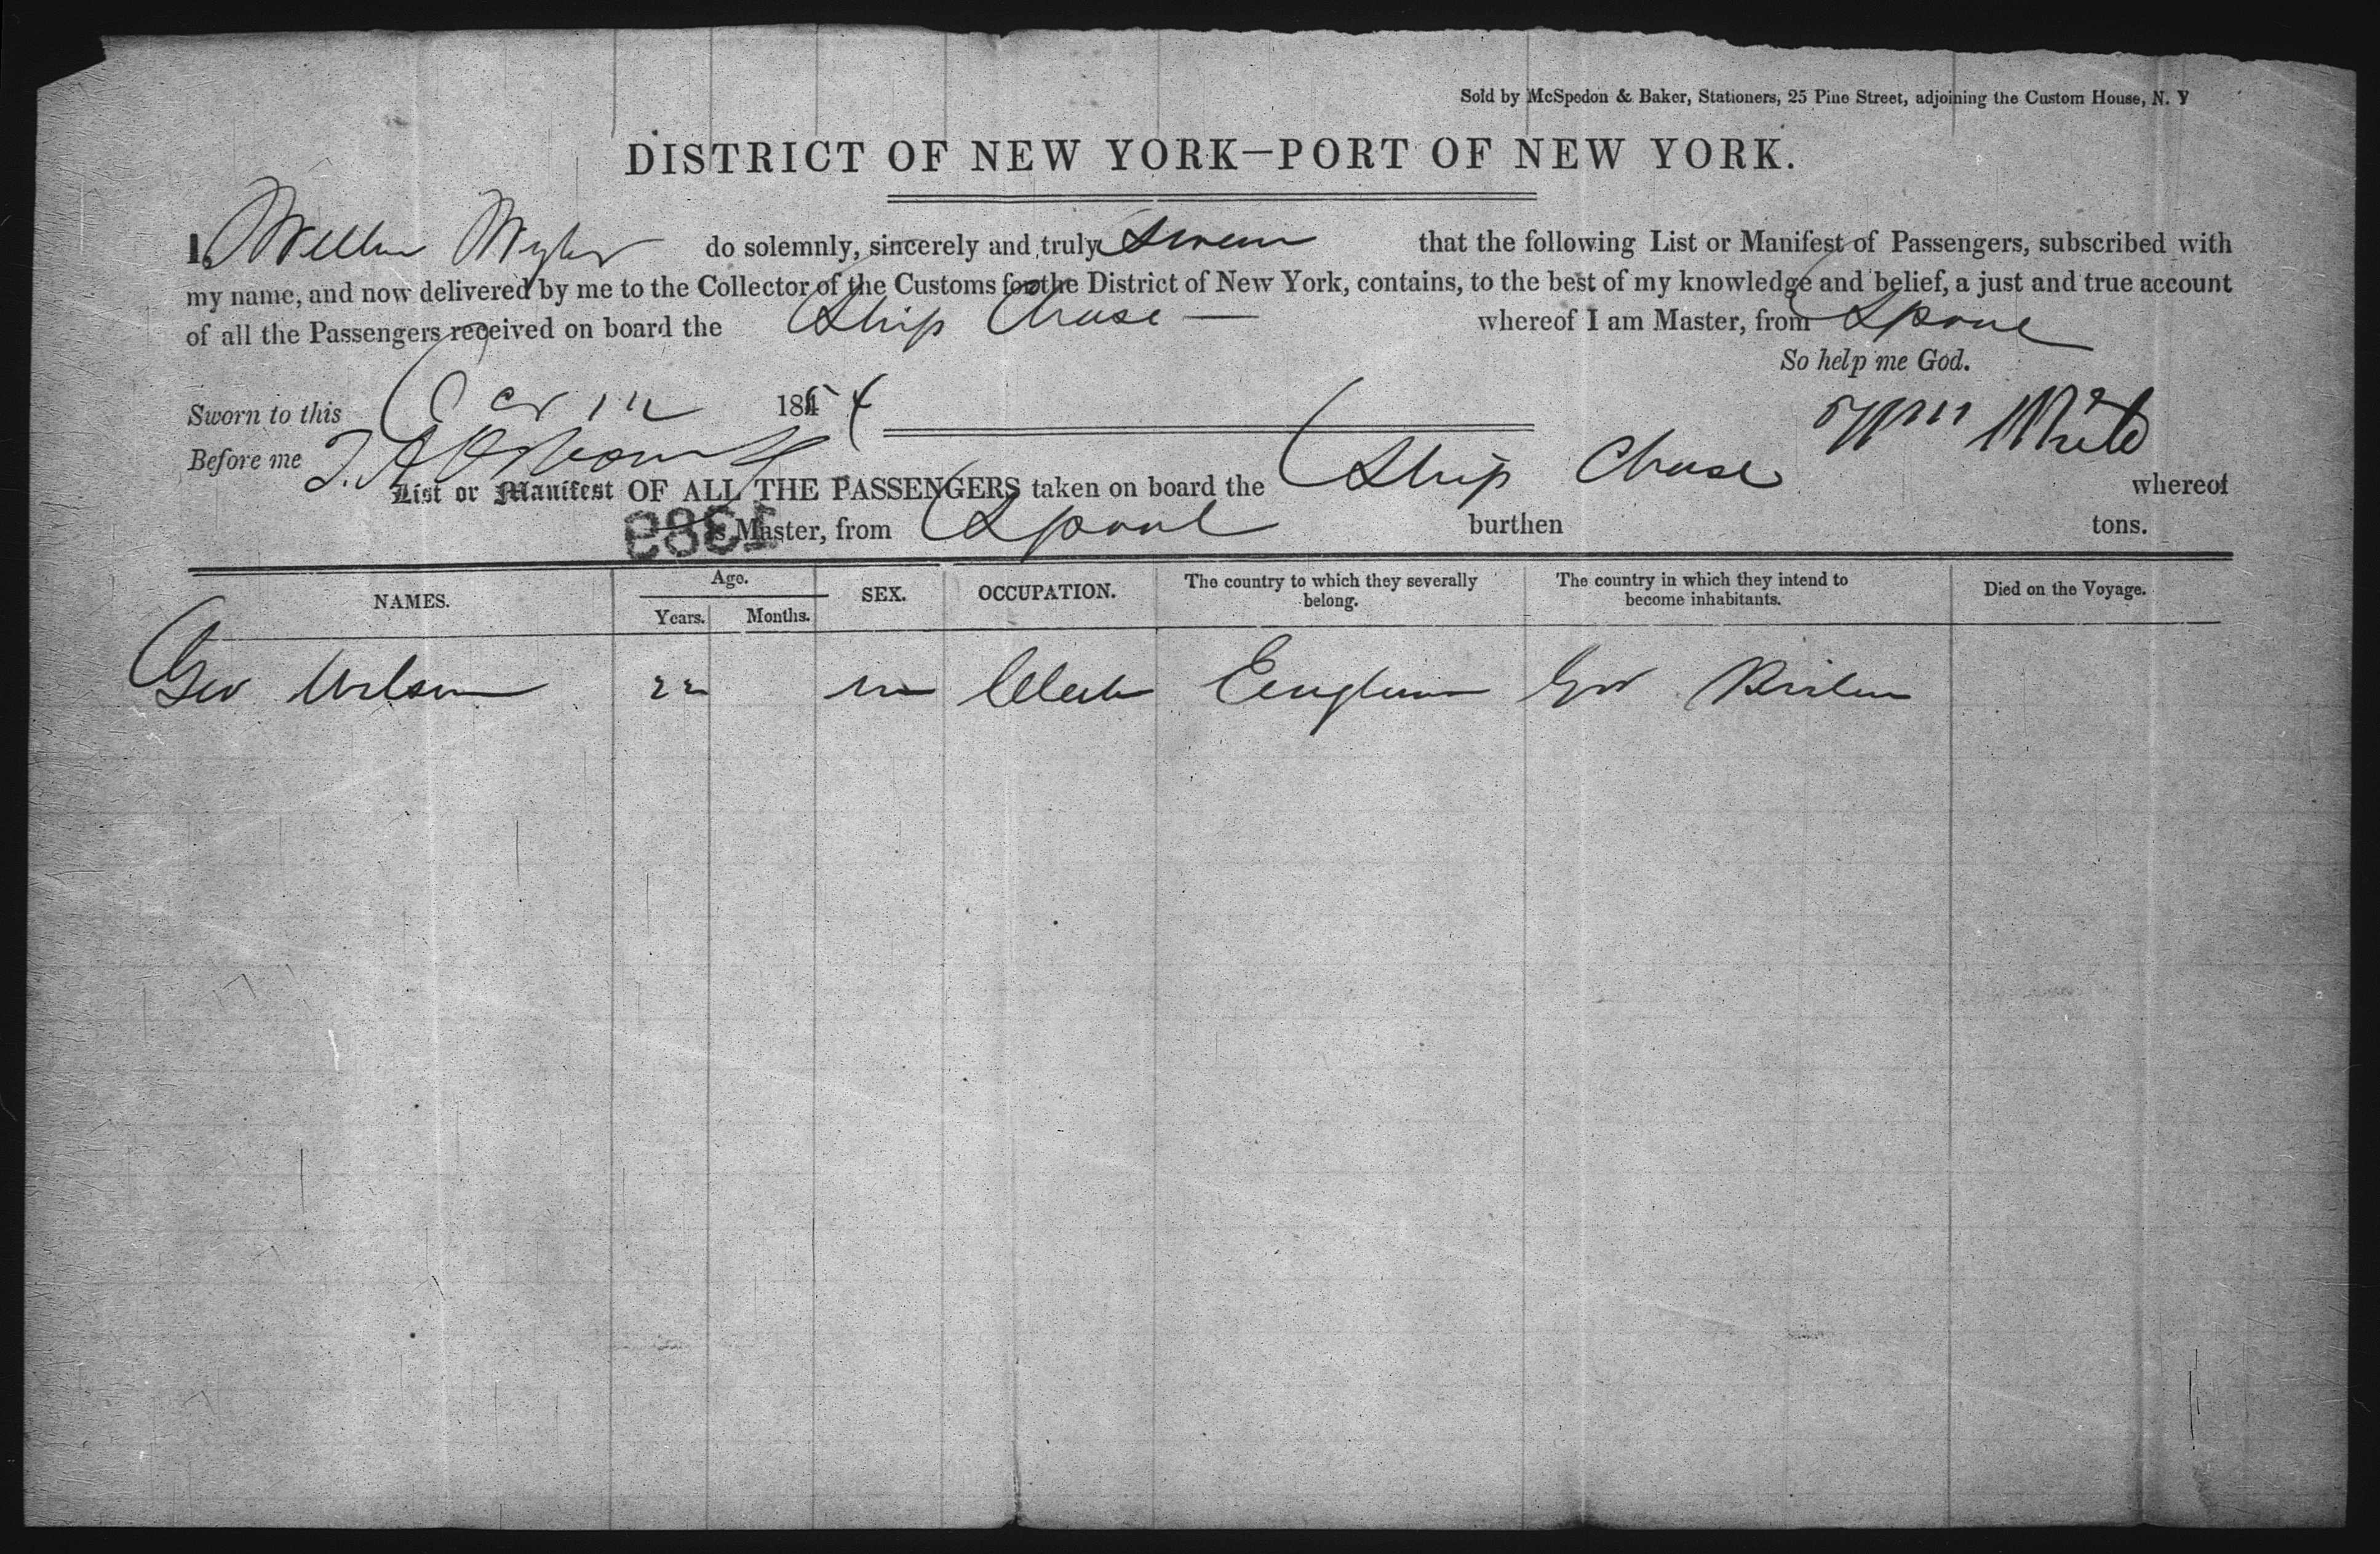 Sold by McSpedon & Baker, Stationers, 25 Pine Street, adjoining the Custom House, N. Y
DISTRICT OF NEW YORK—PORT OF NEW YORK.
I, do solemnly, sincerely and truly Swear that the following List or Manifest of Passengers, subscribed with
my name, and now delivered by me to the Collector of the Customs for the District of New York, contains, to the best of my knowledge and belief, a just and true account
of all the Passengers received on board the Ship Chase — whereof I am Master, from Lpool
So help me God.
Sworn to this 1854
Before me
List or Manifest OF ALL THE PASSENGERS taken on board the Ship Chase whereof
is Master, from Lpool burthen tons.
1389
NAMES. Age. Years. Months. SEX. OCCUPATION. The country to which they severally belong. The country in which they intend to become inhabitants. Died on the Voyage.
Geo Wilson 22 m Clerk England Gr Britain